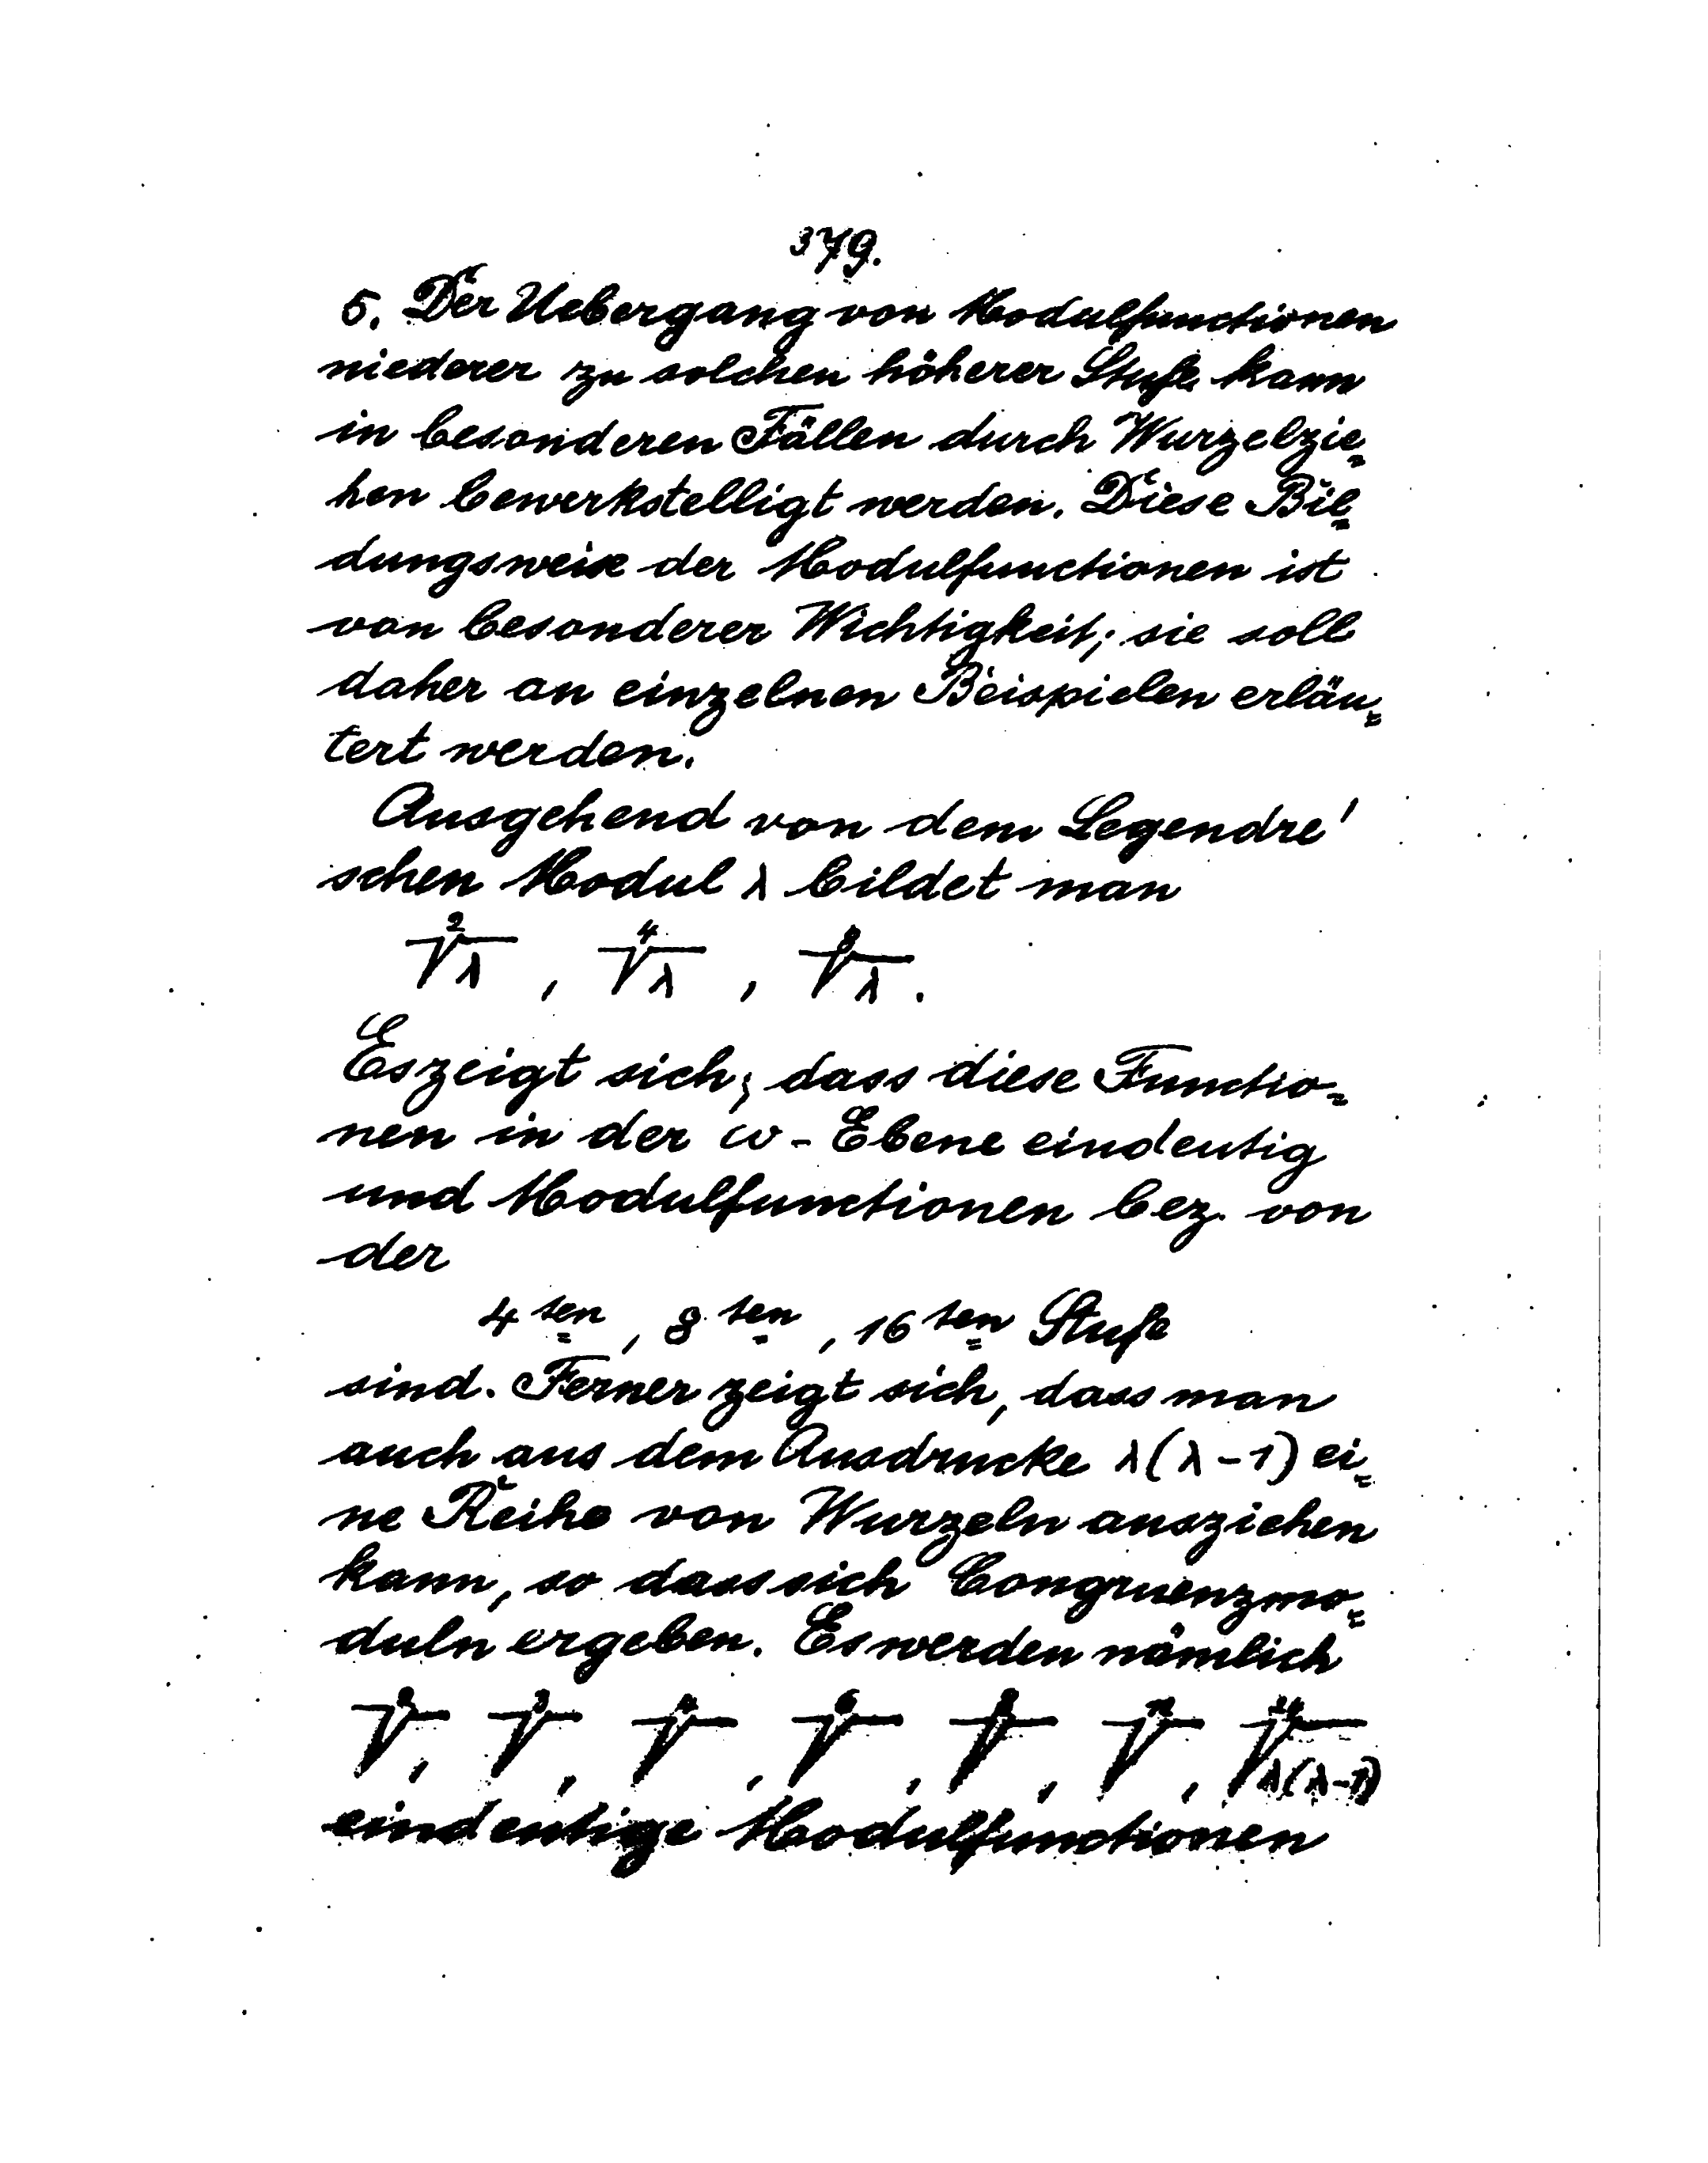 379.
5. Der Uebergang von Modulfunctionen
niederer zu solchen höherer Stufe kann
in besonderen Fällen durch Wurzelzie=
hen bewerkstelligt werden. Diese Bil=
dungsweise der Modulfunctionen ist
von besonderer Wichtigkeit; sie soll
daher an einzelnen Beispielen erläu=
tert werden.
Ausgehend von dem Legendre'
schen Modul λ bildet man
²√λ , ⁴√λ , ⁸√λ .
Es zeigt sich, dass diese Functio=
nen in der ω-Ebene eindeutig
und Modulfunctionen bez. von
der
4ten, 8ten, 16ten Stufe
sind. Ferner zeigt sich, dass man
auch aus dem Ausdrucke λ(λ-1) ei=
ne Reihe von Wurzeln ausziehen
kann, so dass sich Congruenzmo=
duln ergeben. Es werden nämlich
²√, ³√, ⁴√, ⁶√, ⁸√, ¹²√, ²⁴√λ(λ-1)
eindeutige Modulfunctionen